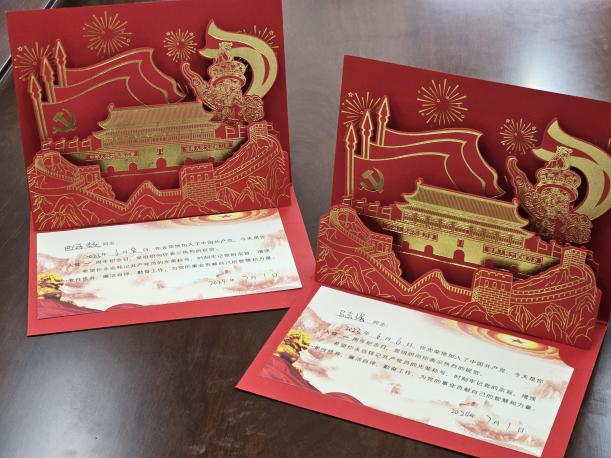 同志:
2023年6月8日,你光荣地加入了中国共产党,今天是你
入党一周年纪念日,党组织向你表示热烈的祝贺。
希望你永远铭记共产党员的光荣称号,时刻牢记党的宗旨,增强
党性修养,廉洁自律,勤奋工作,为党的事业贡献自己的智慧和力量。
2024年7月1日
同志:
2023年6月6日,你光荣地加入了中国共产党,今天是你
入党一周年纪念日,党组织向你表示热烈的祝贺。
希望你永远铭记共产党员的光荣称号,时刻牢记党的宗旨,增强
党性修养,廉洁自律,勤奋工作,为党的事业贡献自己的智慧和力量。
2024年7月1日